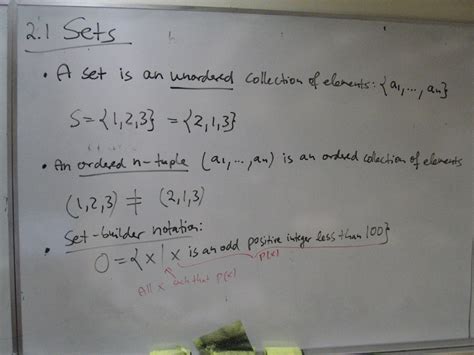 2.1 Sets
• A set is an unordered collection of elements: {a1,...,an}
S={1,2,3} = {2,1,3}
• An ordered n-tuple (a1,...,an) is an ordered collection of elements
(1,2,3) ≠ (2,1,3)
• Set-builder notation:
O={x|x is an odd positive integer less than 100}
P(x)
All x such that P(x)